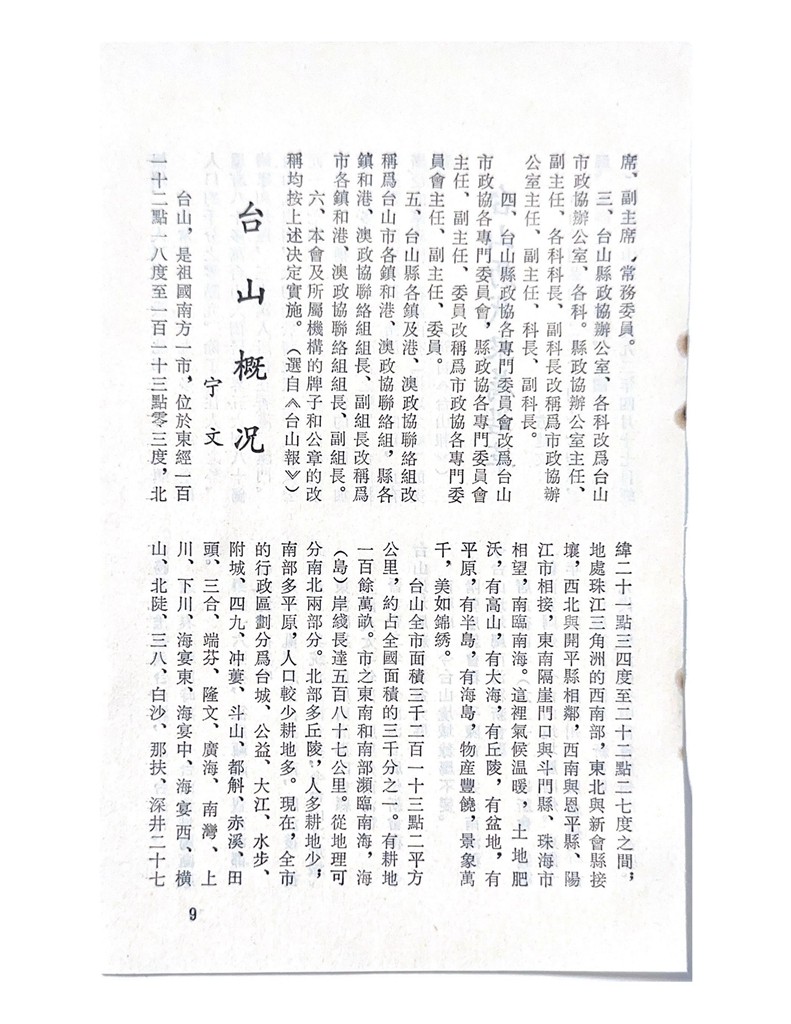 席、副主席、常務委員。
三、台山縣政協辦公室、各科改爲台山
市政協辦公室、各科。縣政協辦公室主任、
副主任、各科科長、副科長改稱爲市政協辦
公室主任、副主任、科長、副科長。
四、台山縣政協各專門委員會改爲台山
市政協各專門委員會，縣政協各專門委員會
主任、副主任、委員改稱爲市政協各專門委
員會主任、副主任、委員。
五、台山縣各鎮及港、澳政協聯絡組改
稱爲台山市各鎮和港、澳政協聯絡組，縣各
鎮和港、澳政協聯絡組組長、副組長改稱爲
市各鎮和港、澳政協聯絡組組長、副組長。
六、本會及所屬機構的牌子和公章的改
稱均按上述决定實施。（選自《台山報》）
台山概况
宁文
台山，是祖國南方一市，位於東經一百
一十二點一八度至一百一十三點零三度，北
緯二十一點三四度至二十二點二七度之間，
地處珠江三角洲的西南部，東北與新會縣接
壤，西北與開平縣相鄰，西南與恩平縣、陽
江市相接，東南隔崖門口與斗門縣、珠海市
相望，南臨南海。這裡氣候温暖，土地肥
沃，有高山，有大海，有丘陵，有盆地，有
平原，有半島，有海島，物産豐饒，景象萬
千，美如錦绣。
台山全市面積三千二百一十三點二平方
公里，約占全國面積的三千分之一。有耕地
一百餘萬畝。市之東南和南部瀕臨南海，海
（島）岸綫長達五百八十七公里。從地理可
分南北兩部分。北部多丘陵，人多耕地少，
南部多平原，人口較少耕地多。現在，全市
的行政區劃分爲台城、公益、大江、水步、
附城、四九、冲蔞、斗山、都斛、赤溪、田
頭、三合、端芬、隆文、廣海、南灣、上
川、下川、海宴東、海宴中、海宴西、横
山、北陡、三八、白沙、那扶、深井二十七
9